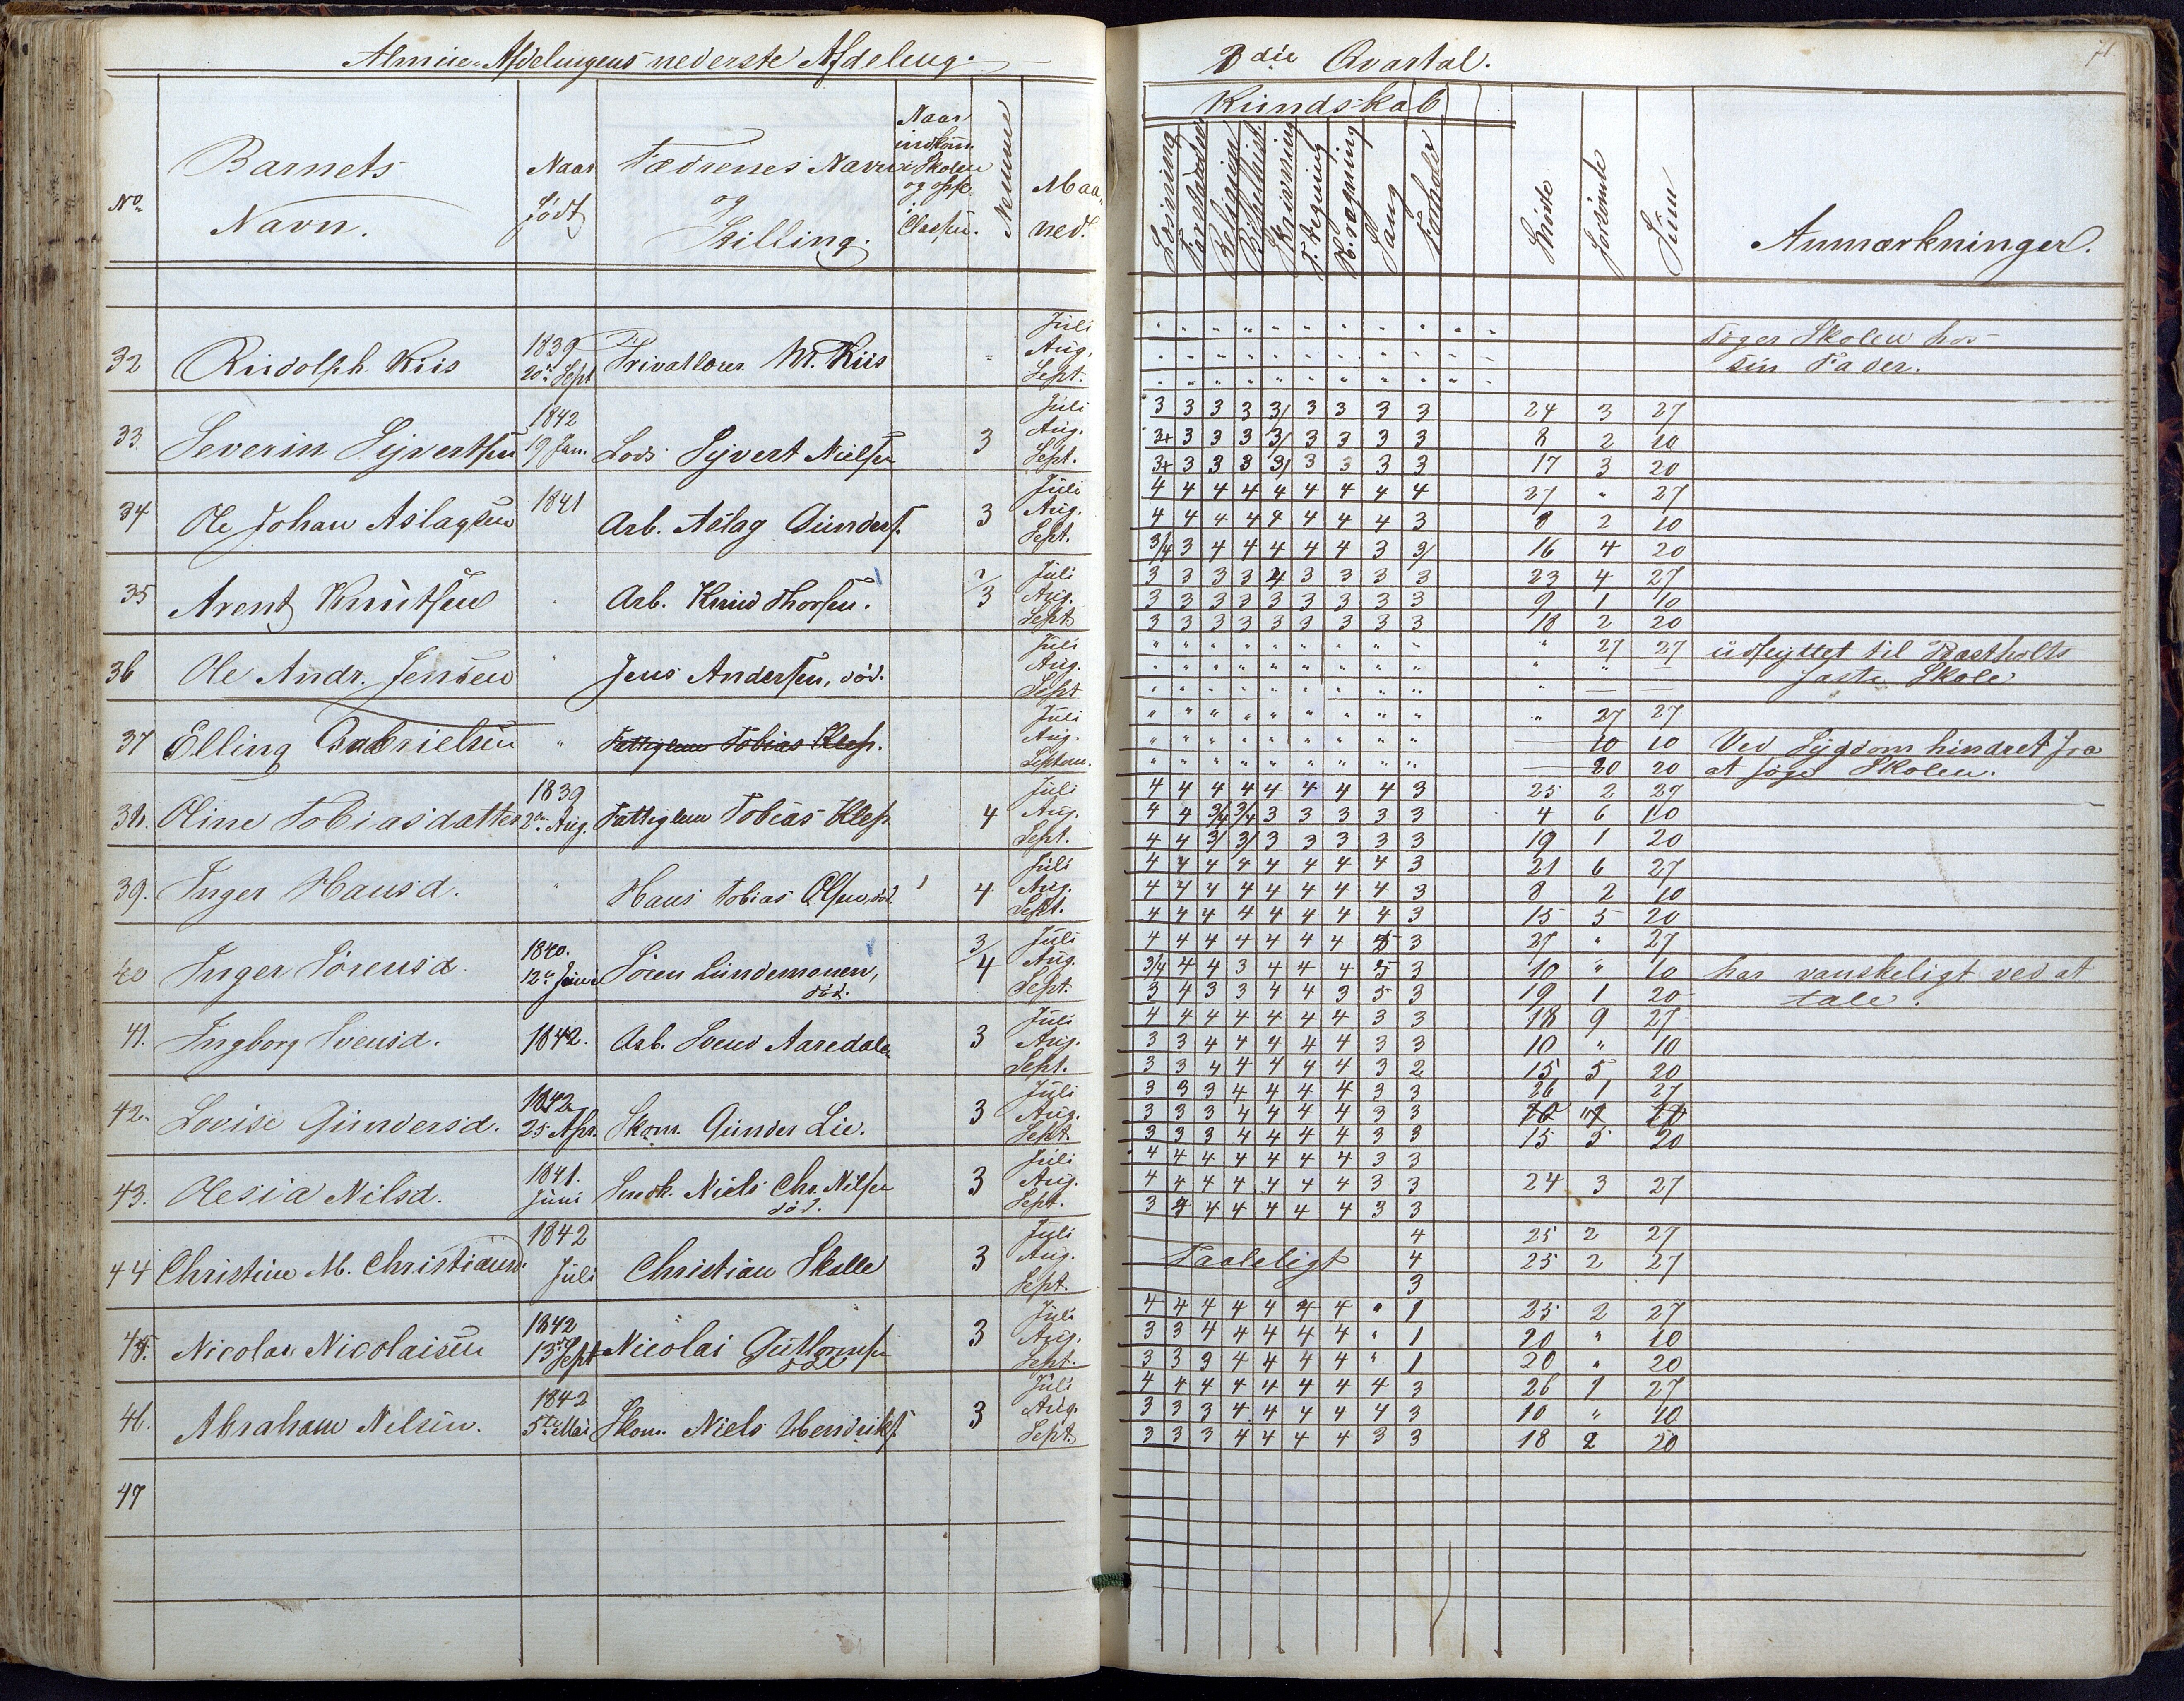 Almue-Afdelingens nederste Afdeling.
3die Qvartal.
71
No.
Barnets
Navn.
Naar
født
Fædrenes Navn
og
Stilling.
Naar
indkom.
i Skolen
og opfl.
i
Classen.
Nemme
Maaned.
Kundskab
Læsning
Forstandse
Religion
Bibelhist.
Skrivning
T. regning
H. regning
Sang
Forhold
Søgte
Forsømte
Sum
Anmærkninger.
32 Rudolph Kiis 1839 20de Sept Privatlærer M. Kiis
Juli Søger Skolen hos
Aug. sin Fader.
Sept.
33. Severin Syvertsen 1842 19 Jan. Lods Syvert Nielsen 3
Juli 3 3 3 3 3/ 3 3 3 3 24 3 27
Aug. 3+ 3 3 3 3/ 3 3 3 3 8 2 10
Sept. 3+ 3 3 3 3/ 3 3 3 3 17 3 20
34 Ole Johan Aslagsen 1841 Arb. Aslag Gunders. 3
Juli 4 4 4 4 4 4 4 4 4 27 " 27
Aug. 4 4 4 4 4 4 4 4 3 8 2 10
Sept. 3/4 3 4 4 4 4 4 3 3/ 16 4 20
35 Arent Knutsen Arb. Knud Thorsen. 2/3
Juli 3 3 3 3 4 3 3 3 3 23 4 27
Aug. 3 3 3 3 3 3 3 3 3 9 1 10
Sept 3 3 3 3 3 3 3 3 3 18 2 20
36 Ole Andr. Jensen " Jens Andersen, død.
Juli " " " " " " " " " " 27 27 udflyttet til Rastholts
Aug. " " " " " " " " " " " — faste Skole
Sept " " " " " " " " " " — —
37 Elling Gabrielsen " Fattiglem Tobias Klep.
Juli " " " " " " " " " " 27 27
Aug. " " " " " " " " " — 10 10 Ved Sygdom hindret fra
Septem. " " " " " " " " " — 20 20 at søge Skolen.
38. Oline Tobiasdatter 1839 2den Aug. Fattiglem Tobias Klep. 4
Juli 4 4 4 4 4 4 4 4 3 25 2 27
Aug. 4 4 3/4 3/4 3 3 3 3 3 4 6 10
Sept. 4 4 3/ 3/ 3 3 3 3 3 19 1 20
39. Inger Hansd. " Hans Tobias Olsen, død. 4
Juli 4 4 4 4 4 4 4 4 3 21 6 27
Aug. 4 4 4 4 4 4 4 4 3 8 2 10
Sept. 4 4 4 4 4 4 4 4 3 15 5 20
40 Inger Sørensd. 1840. 12te Juni Søren Lundemonen, død. 3/4
Juli 4 4 4 4 4 4 4 5 3 27 " 27
Aug. 3/4 4 4 3 4 4 4 5 3 10 " 10 har vanskeligt ved at
Sept. 3 4 3 3 4 4 3 5 3 19 1 20 tale.
41. Ingborg Svensd. 1842. Arb. Svend Aaredalen 3
Juli 4 4 4 4 4 4 4 3 3 18 9 27
Aug. 3 3 4 4 4 4 4 3 3 10 " 10
Sept. 3 3 4 4 4 4 4 3 2 15 5 20
42. Lovise Gundersd. 1842 25 Apr. Skom. Gunder Lie. 3
Juli 3 3 3 4 4 4 4 3 3 26 1 27
Aug. 3 3 3 4 4 4 4 3 3
Sept. 3 3 3 4 4 4 4 3 3 15 5 20
43. Olesia Nilsd. 1841. Juni Snedk. Niels Chr. Nilsen død. 3
Juli 4 4 4 4 4 4 4 3 3
Aug. 4 4 4 4 4 4 4 3 3 24 3 27
Sept. 3 4 4 4 4 4 4 3 3
44 Christine M. Christiansd. 1842 Juli Christian Skalle 3
Juli 4 25 2 27
Aug. Taaleligt 4 25 2 27
Sept. 3
45. Nicolai Nicolaisen 1842 13de Sept Nicolai Guttormsen død 3
Juli 4 4 4 4 4 4 4 " 1 25 2 27
Aug. 3 3 4 4 4 4 4 " 1 10 " 10
Sept. 3 3 3 4 4 4 4 " 1 20 " 20
46. Abraham Nelsen. 1842 5te Mai Skom. Niels Hendriks. 3
Juli 4 4 4 4 4 4 4 4 3 26 1 27
Aug. 3 3 3 4 4 4 4 4 3 10 " 10
Sept. 3 3 3 4 4 4 4 3 3 18 2 20
47